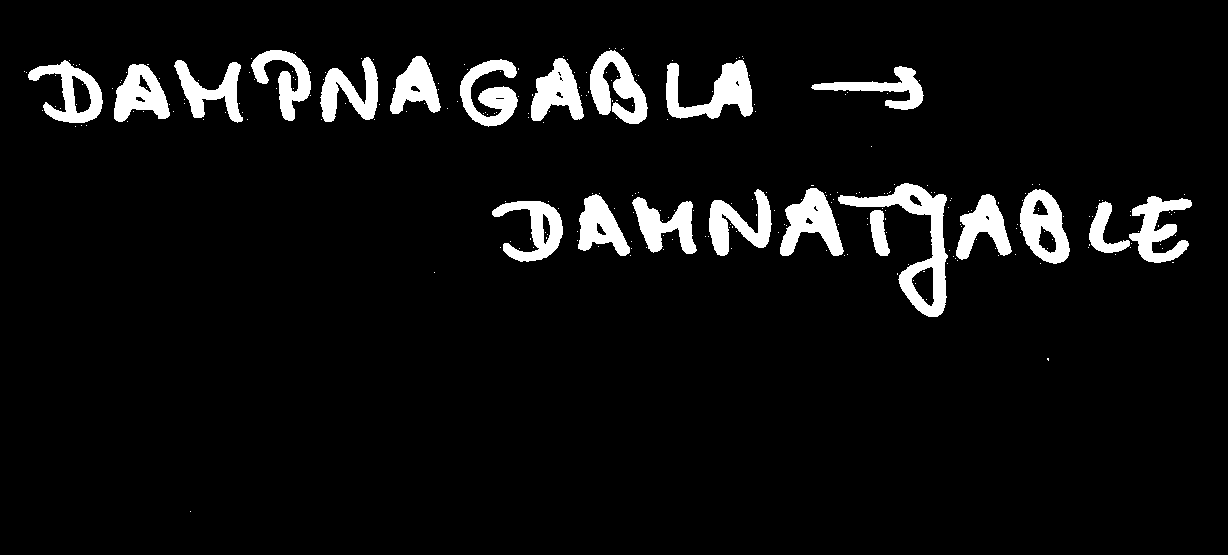 DAMPNAGABLA →
DAMNATYABLE